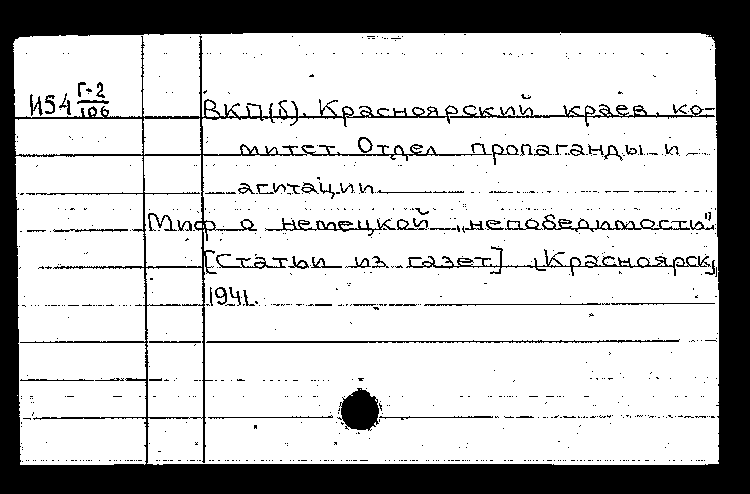 И54 Г-2/106
ВКП(б). Красноярский краев. ко-
митет. Отдел пропаганды и
агитации.
Миф о немецкой „непобедимости".
[Статьи из газет] [Красноярск]
1941.